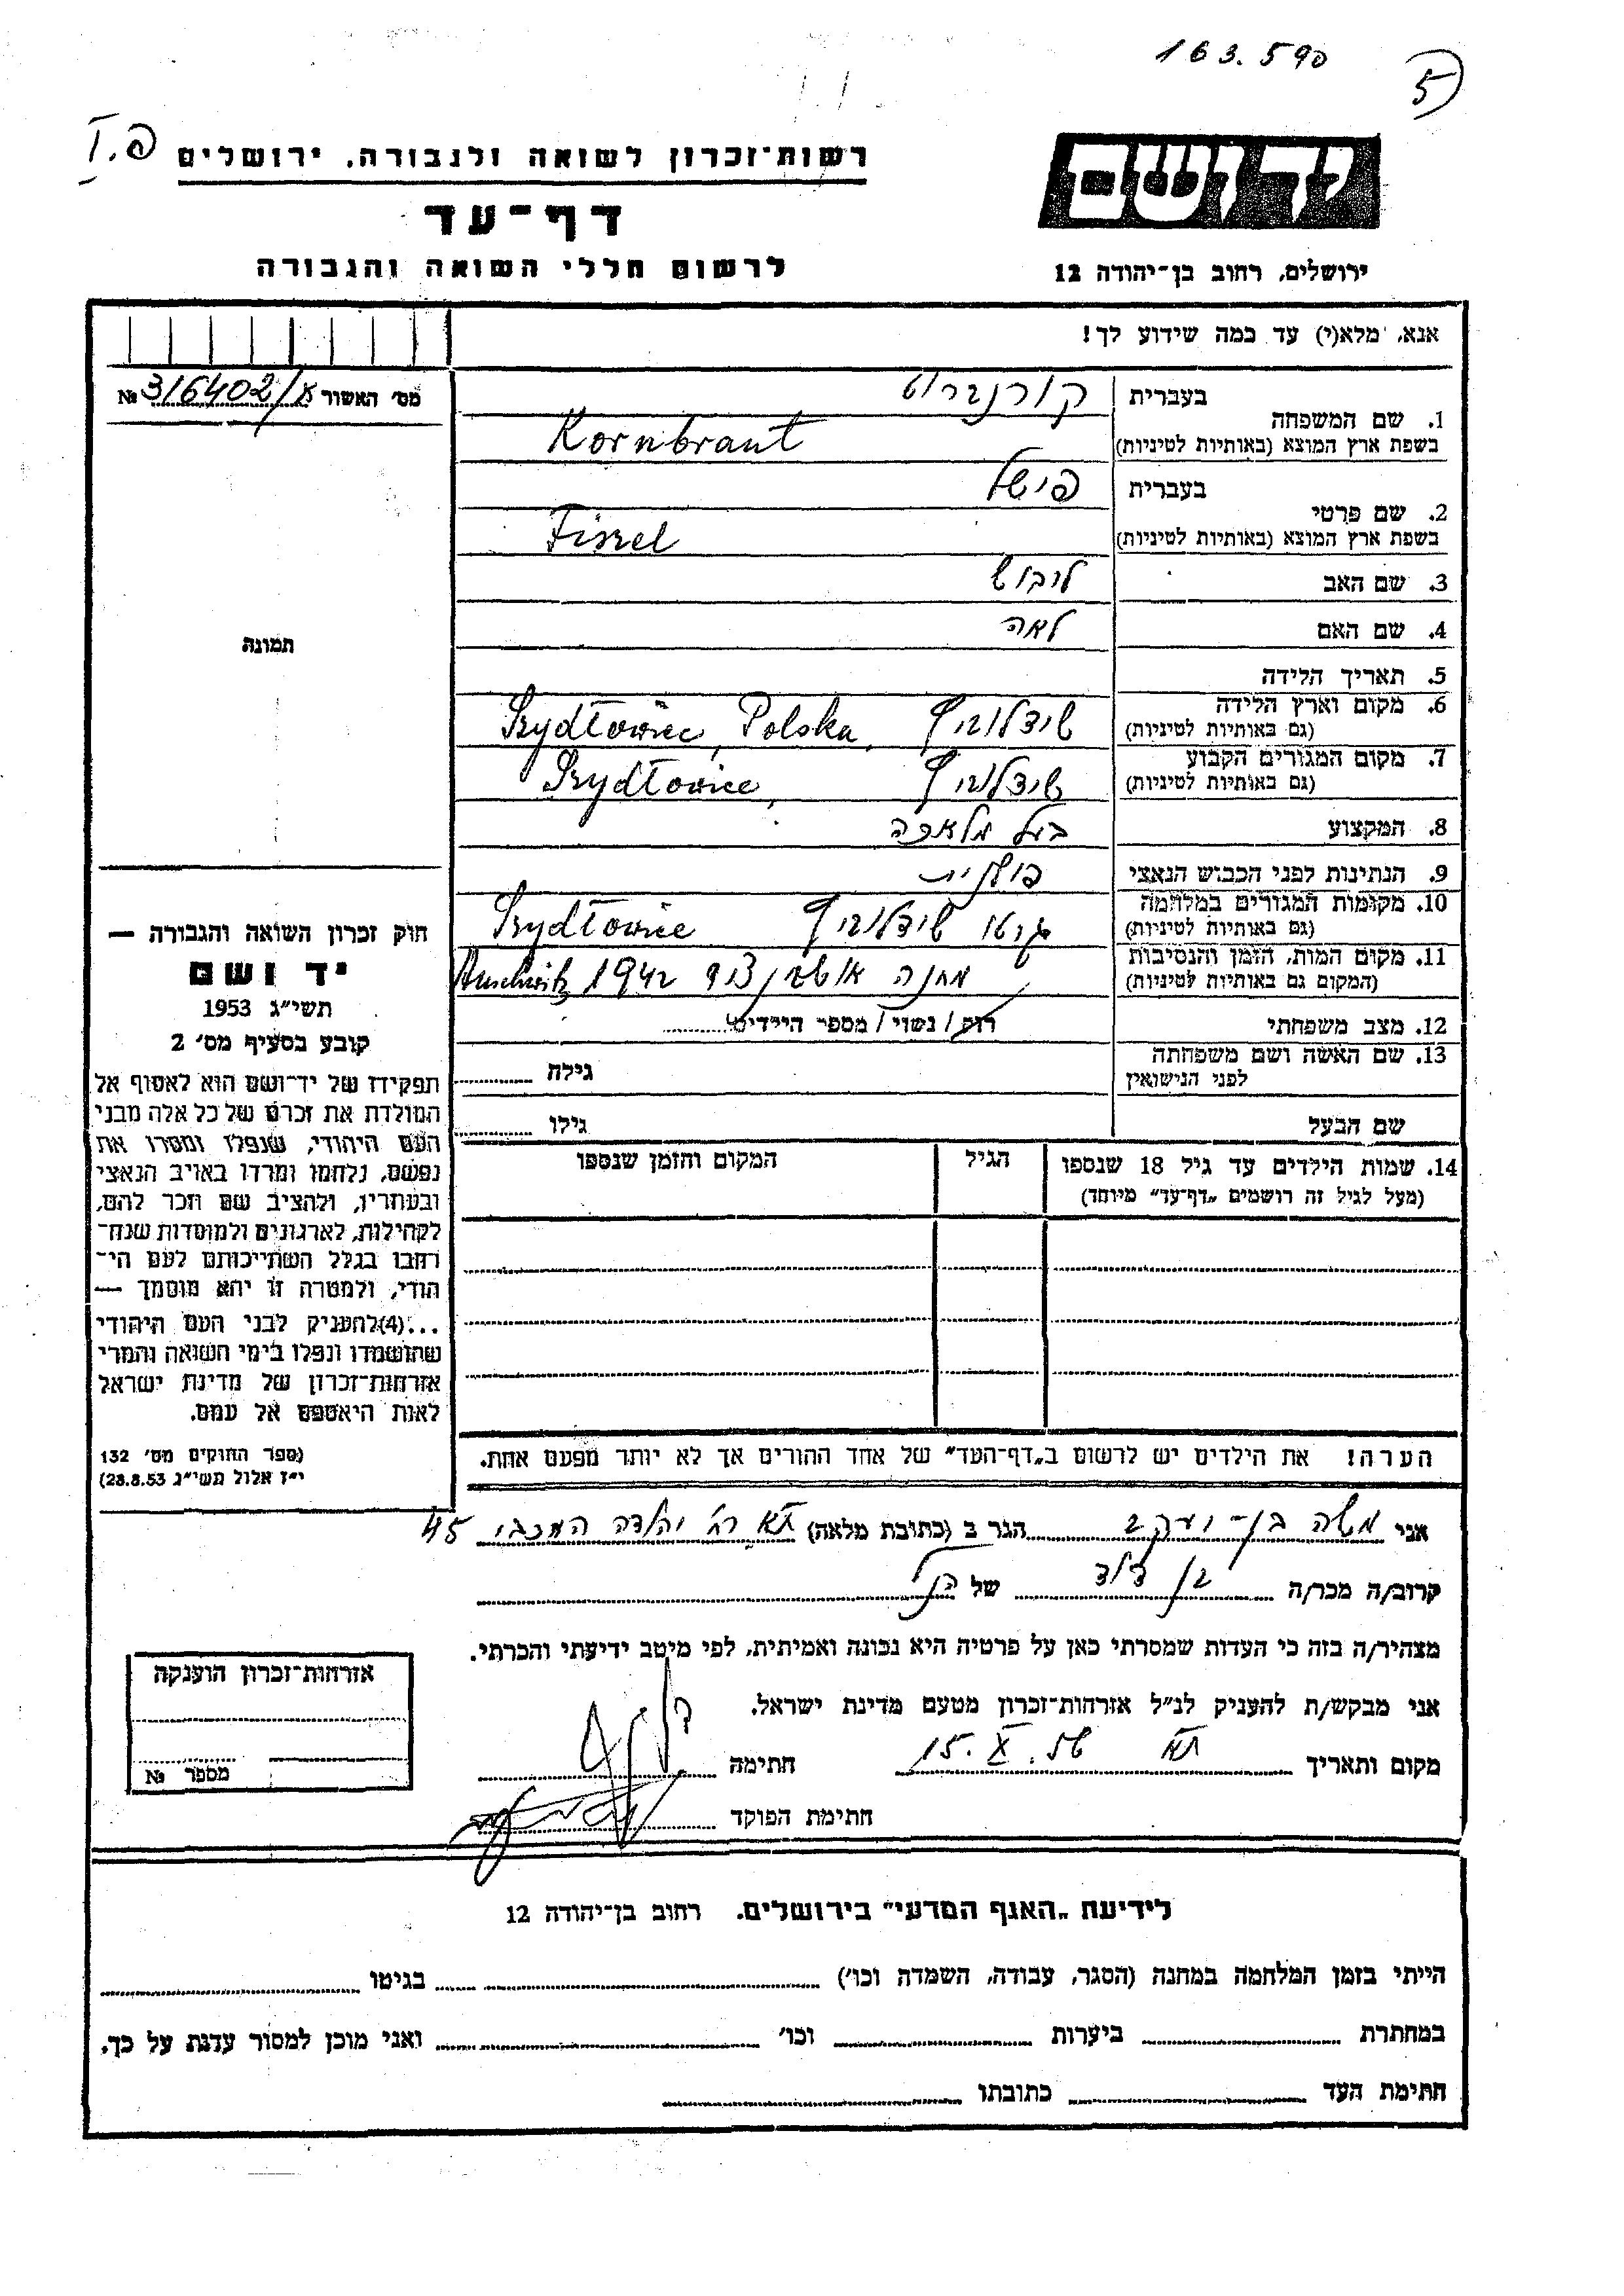 163.590
5
פ.I
רשות־זכרון לשואה ולגבורה, ירושלים
יד ושם
דף־עד
לרשום חללי השואה והגבורה
ירושלים, רחוב בן־יהודה 12
אנא, מלא(י) עד כמה שידוע לך!
מס׳ האשור 316402/א №
1. שם המשפחה
בעברית קורנברוט
בשפת ארץ המוצא (באותיות לטיניות) Kornbraut
2. שם פרטי
בעברית פישל
בשפת ארץ המוצא (באותיות לטיניות) Fiszel
3. שם האב ליבוש
4. שם האם לאה
5. תאריך הלידה
6. מקום וארץ הלידה
(גם באותיות לטיניות) שידלוביץ Szydłowiec, Polska,
7. מקום המגורים הקבוע
(גם באותיות לטיניות) שידלוביץ Szydłowiec,
8. המקצוע בעל מלאכה
9. הנתינות לפני הכבוש הנאצי פולנית
10. מקומות המגורים במלחמה
(גם באותיות לטיניות) גיטו שידלוביץ Szydłowiec
11. מקום המות, הזמן והנסיבות
(המקום גם באותיות לטיניות) מחנה אושבינציף 1942 Auschwitz
12. מצב משפחתי רוק / נשוי / מספר הילדים
13. שם האשה ושם משפחתה
לפני הנישואין
גילה
שם הבעל
גילו
14. שמות הילדים עד גיל 18 שנספו
(מעל לגיל זה רושמים „דף־עד” מיוחד)
הגיל
המקום והזמן שנספו
הערה! את הילדים יש לרשום ב„דף־העד” של אחד ההורים אך לא יותר מפעם אחת.
תמונה
חוק זכרון השואה והגבורה —
יד ושם
תשי״ג 1953
קובע בסעיף מס׳ 2
תפקידו של יד־ושם הוא לאסוף אל
המולדת את זכרם של כל אלה מבני
העם היהודי, שנפלו ומסרו את
נפשם, נלחמו ומרדו באויב הנאצי
ובעוזריו, ולהציב שם וזכר להם,
לקהילות, לארגונים ולמוסדות שנח־
רבו בגלל השתייכותם לעם הי־
הודי, ולמטרה זו יהא מוסמך —
...(4)להעניק לבני העם היהודי
שהושמדו ונפלו בימי השואה והמרי
אזרחות־זכרון של מדינת ישראל
לאות היאספם אל עמם.
(ספר החוקים מס׳ 132
י״ז אלול תשי״ג 28.8.53)
אני משה בן־יעקב הגר ב (כתובת מלאה) תא רח׳ יהודה המכבי 45
קרוב/ה מכר/ה בן דוד של הנ״ל
מצהיר/ה בזה כי העדות שמסרתי כאן על פרטיה היא נכונה ואמיתית, לפי מיטב ידיעתי והכרתי.
אני מבקש/ת להעניק לנ״ל אזרחות־זכרון מטעם מדינת ישראל.
מקום ותאריך תא 15.X.56 חתימה
חתימת הפוקד
אזרחות־זכרון הוענקה
מספר №
לידיעת „האגף המדעי” בירושלים. רחוב בן־יהודה 12
הייתי בזמן המלחמה במחנה (הסגר, עבודה, השמדה וכו׳) בגיטו
במחתרת ביערות וכו׳ ואני מוכן למסור עדות על כך.
חתימת העד כתובתו